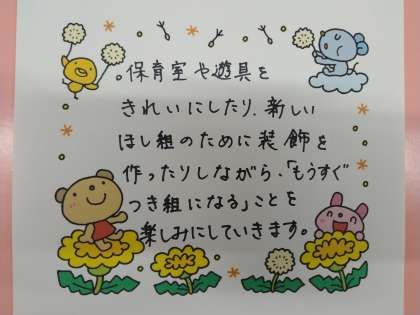 。保育室や遊具を
きれいにしたり、新しい
ほし組のために装飾を
作ったりしながら、「もうすぐ
つき組になる」ことを
楽しみにしていきます。